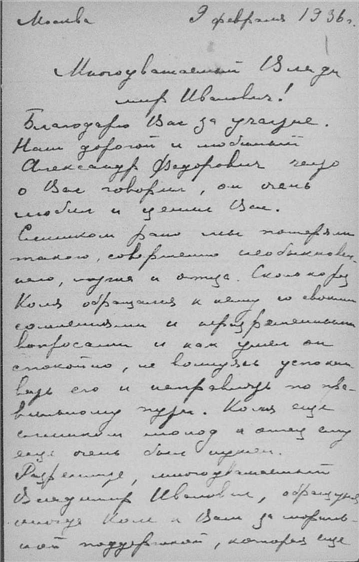 Москва 9 февраля 1936 г.
Многоуважаемый Влади
мир Иванович!
Благодарю Вас за участие.
Наш дорогой и любимый
Александр Федорович часто
о Вас говорил, он очень
любил и ценил Вас.
Слишком рано мы потеряли
такого, совершенно необыкновен
ного, мужа и отца. Сколько раз
Коля обращался к нему со своими
сомнениями и неразрешенными
вопросами и как умел он
спокойно, не волнуясь успокаи
вать его и направлять по пра
вильному пути. Коля еще
слишком молод и отец ему
еще очень был нужен.
Разрешите, многоуважаемый
Владимир Иванович, обращаться
иногда Коле к Вам за мораль-
ной поддержкой, которая еще